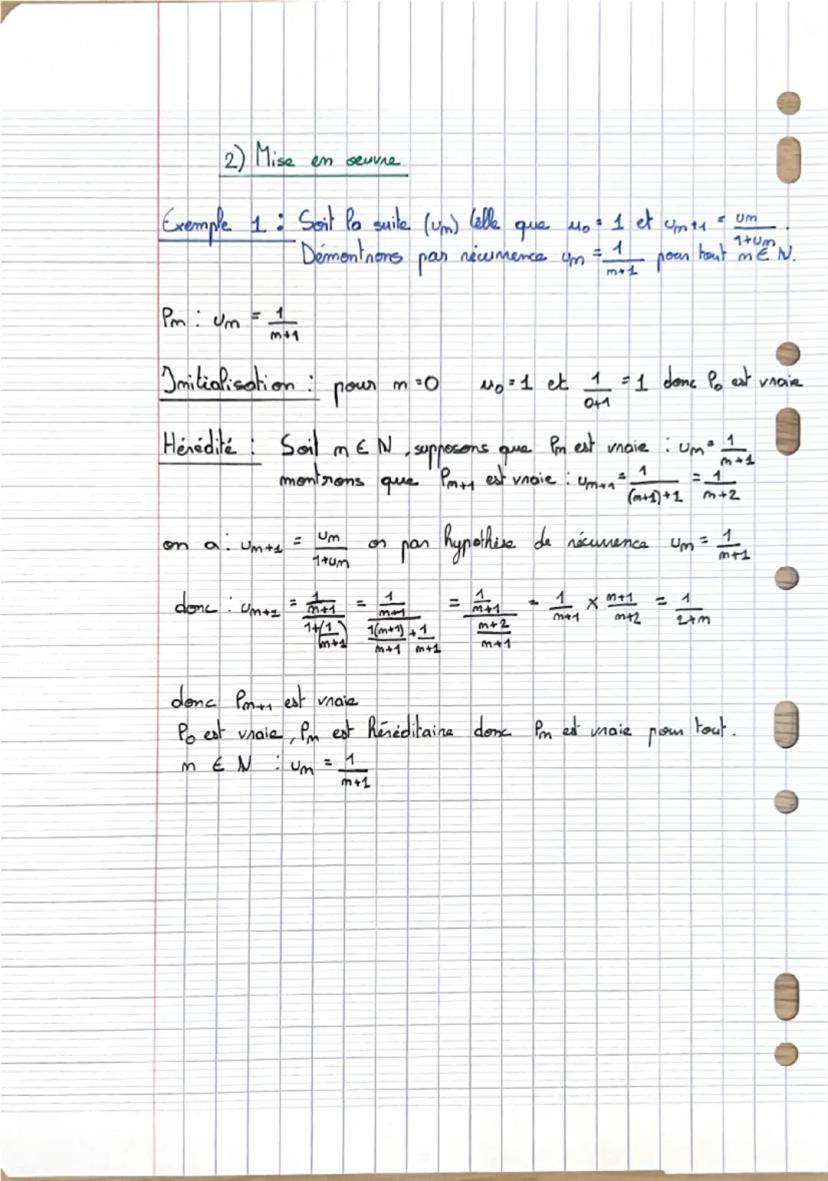 2) Mise en oeuvre
Exemple 1 : Soit la suite (un) telle que u0 = 1 et un+1 = un/(1+un).
Démontrons par récurrence un = 1/(n+1) pour tout n ∈ N.
Pn : un = 1/(n+1)
Initialisation : pour n = 0 u0 = 1 et 1/(0+1) = 1 donc P0 est vraie
Hérédité : Soit n ∈ N, supposons que Pn est vraie : un = 1/(n+1)
montrons que Pn+1 est vraie : un+1 = 1/((n+1)+1) = 1/(n+2)
on a : un+1 = un/(1+un) or par hypothèse de récurrence un = 1/(n+1)
donc : un+1 = (1/(n+1))/(1+(1/(n+1))) = (1/(n+1))/(1(n+1)/(n+1) + 1/(n+1)) = (1/(n+1))/((n+2)/(n+1)) = 1/(n+1) × (n+1)/(n+2) = 1/(2+n)
donc Pn+1 est vraie
P0 est vraie, Pn est héréditaire donc Pn est vraie pour tout.
n ∈ N : un = 1/(n+1)